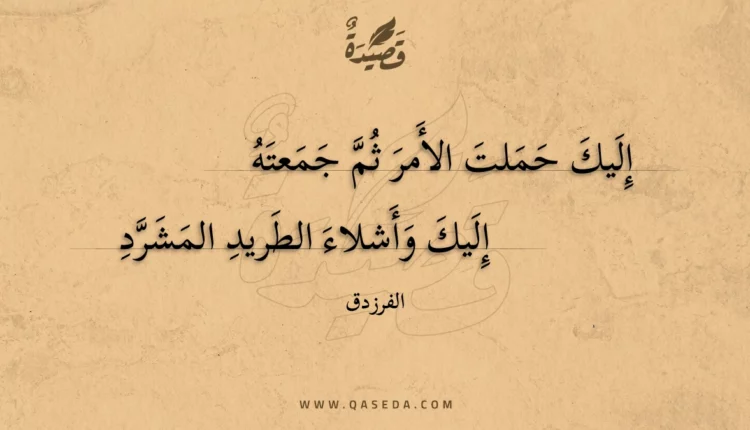 قَصِيْدَةٌ
إِلَيكَ حَمَلتَ الأَمرَ ثُمَّ جَمَعتَهُ
إِلَيكَ وَأَشلاءَ الطَريدِ المَشَرَّدِ
الفرزدق
WWW.QASEDA.COM